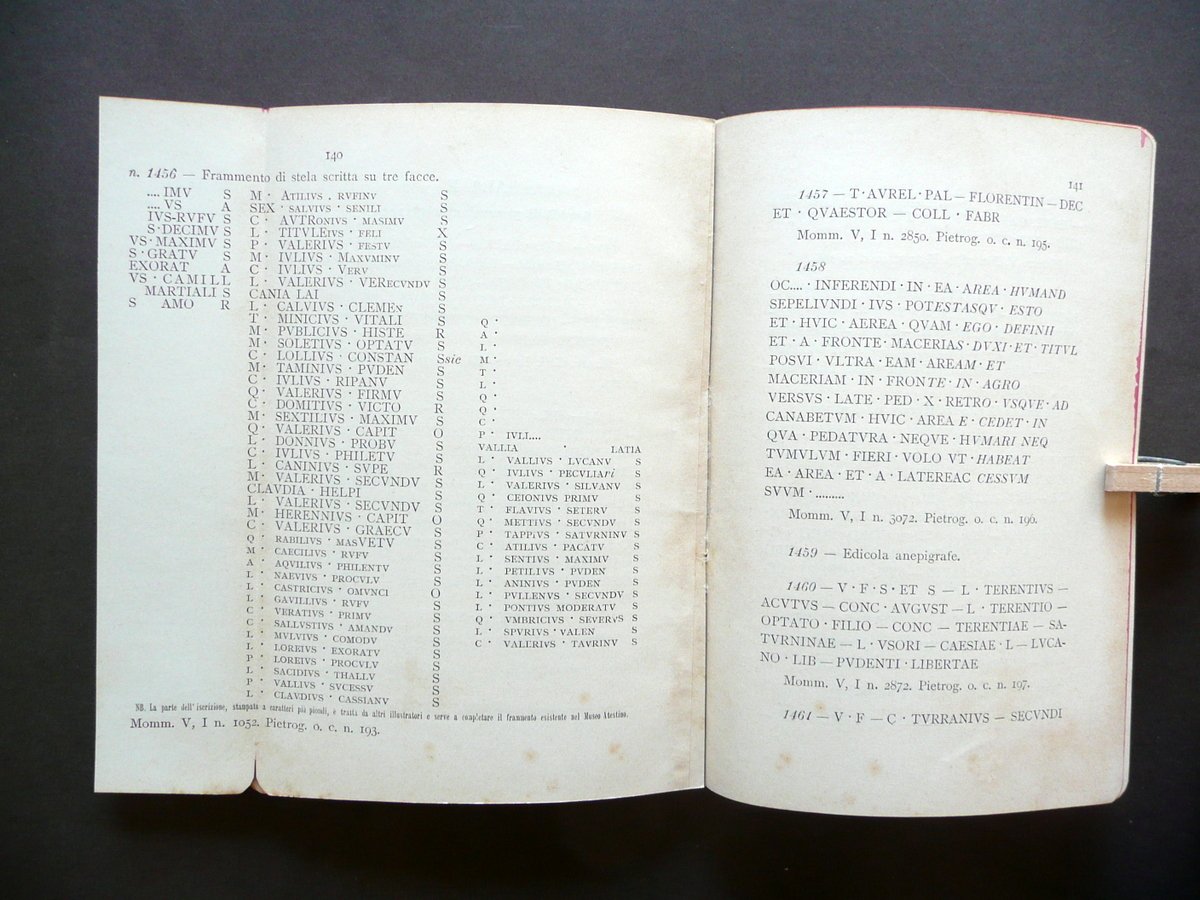 140
n. 1456 — Frammento di stela scritta su tre facce.
.... IMV S
.... VS A
IVS-RVFV S
S · DECIMV S
VS · MAXIMV S
S · GRATV S
EXORAT A
VS · CAMILL
MARTIALI S
S AMO R
M · ATILIVS . RVFINV S
SEX · SALVIVS · SENILI S
C · AVTRONIVS · MASIMV S
L · TITVLEIVS · FELI X
P · VALERIVS · FESTV S
M · IVLIVS · MAXVMINV S
C · IVLIVS · VERV S
L · VALERIVS · VERECVNDV S
CANIA LAI S
L · CALVIVS · CLEMEN S
T · MINICIVS · VITALI S
M · PVBLICIVS · HISTE R
M · SOLETIVS · OPTATV S
C · LOLLIVS · CONSTAN Ssic
M · TAMINIVS · PVDEN S
C · IVLIVS · RIPANV S
Q · VALERIVS · FIRMV S
C · DOMITIVS · VICTO R
M · SEXTILIVS · MAXIMV S
Q · VALERIVS · CAPIT O
L · DONNIVS · PROBV S
C · IVLIVS · PHILETV S
L · CANINIVS · SVPE R
M · VALERIVS · SECVNDV S
CLAVDIA · HELPI S
L · VALERIVS · SECVNDV S
M · HERENNIVS · CAPIT O
C · VALERIVS · GRAECV S
Q · RABILIVS · MASVETV S
M · CAECILIVS · RVFV S
A · AQVILIVS · PHILENTV S
L · NAEVIVS · PROCVLV S
L · CASTRICIVS · OMVNCI O
L · GAVILLIVS · RVFV S
C · VERATIVS · PRIMV S
C · SALLVSTIVS · AMANDV S
L · MVLVIVS · COMODV S
L · LOREIVS · EXORATV S
P · LOREIVS · PROCVLV S
L · SACIDIVS · THALLV S
P · VALLIVS · SVCESSV S
L · CLAVDIVS · CASSIANV S
Q ·
A ·
L ·
M ·
T ·
L ·
Q ·
Q ·
C ·
P · IVLI....
VALLIA · LATIA
L · VALLIVS · LVCANV S
Q · IVLIVS · PECVLIARI S
L · VALERIVS · SILVANV S
Q · CEIONIVS PRIMV S
T · FLAVIVS · SETERV S
Q · METTIVS · SECVNDV S
P · TAPPIVS · SATVRNINV S
C · ATILIVS · PACATV S
L · SENTIVS · MAXIMV S
L · PETILIVS · PVDEN S
L · ANINIVS · PVDEN S
L · PVLLENVS · SECVNDV S
L · PONTIVS MODERATV S
Q · VMBRICIVS · SEVERVS S
L · SPVRIVS · VALEN S
C · VALERIVS · TAVRINV S
NB. La parte dell' iscrizione, stampata a caratteri più piccoli, è tratta da altri illustratori e serve a completare il frammento esistente nel Museo Atestino.
Momm. V, I n. 1052. Pietrog. o. c. n. 193.
141
1457 — T · AVREL · PAL — FLORENTIN — DEC
ET · QVAESTOR — COLL · FABR
Momm. V, I n. 2850. Pietrog. o. c. n. 195.
1458
OC.... · INFERENDI · IN · EA · AREA · HVMAND
SEPELIVNDI · IVS · POTESTASQV · ESTO
ET · HVIC · AEREA · QVAM · EGO · DEFINII
ET · A · FRONTE · MACERIAS · DVXI · ET · TITVL
POSVI · VLTRA · EAM · AREAM · ET
MACERIAM · IN · FRONTE · IN · AGRO
VERSVS · LATE · PED · X · RETRO · VSQVE · AD
CANABETVM · HVIC · AREA E · CEDET · IN
QVA · PEDATVRA · NEQVE · HVMARI NEQ
TVMVLVM · FIERI · VOLO VT · HABEAT
EA · AREA · ET · A · LATEREAC CESSVM
SVVM · .........
Momm. V, I n. 3072. Pietrog. o. c. n. 196.
1459 — Edicola anepigrafe.
1460 — V · F · S · ET S — L · TERENTIVS —
ACVTVS — CONC · AVGVST — L · TERENTIO —
OPTATO · FILIO — CONC — TERENTIAE — SA-
TVRNINAE — L · VSORI — CAESIAE · L — LVCA-
NO · LIB — PVDENTI · LIBERTAE
Momm. V, I n. 2872. Pietrog. o. c. n. 197.
1461 — V · F — C · TVRRANIVS — SECVNDI